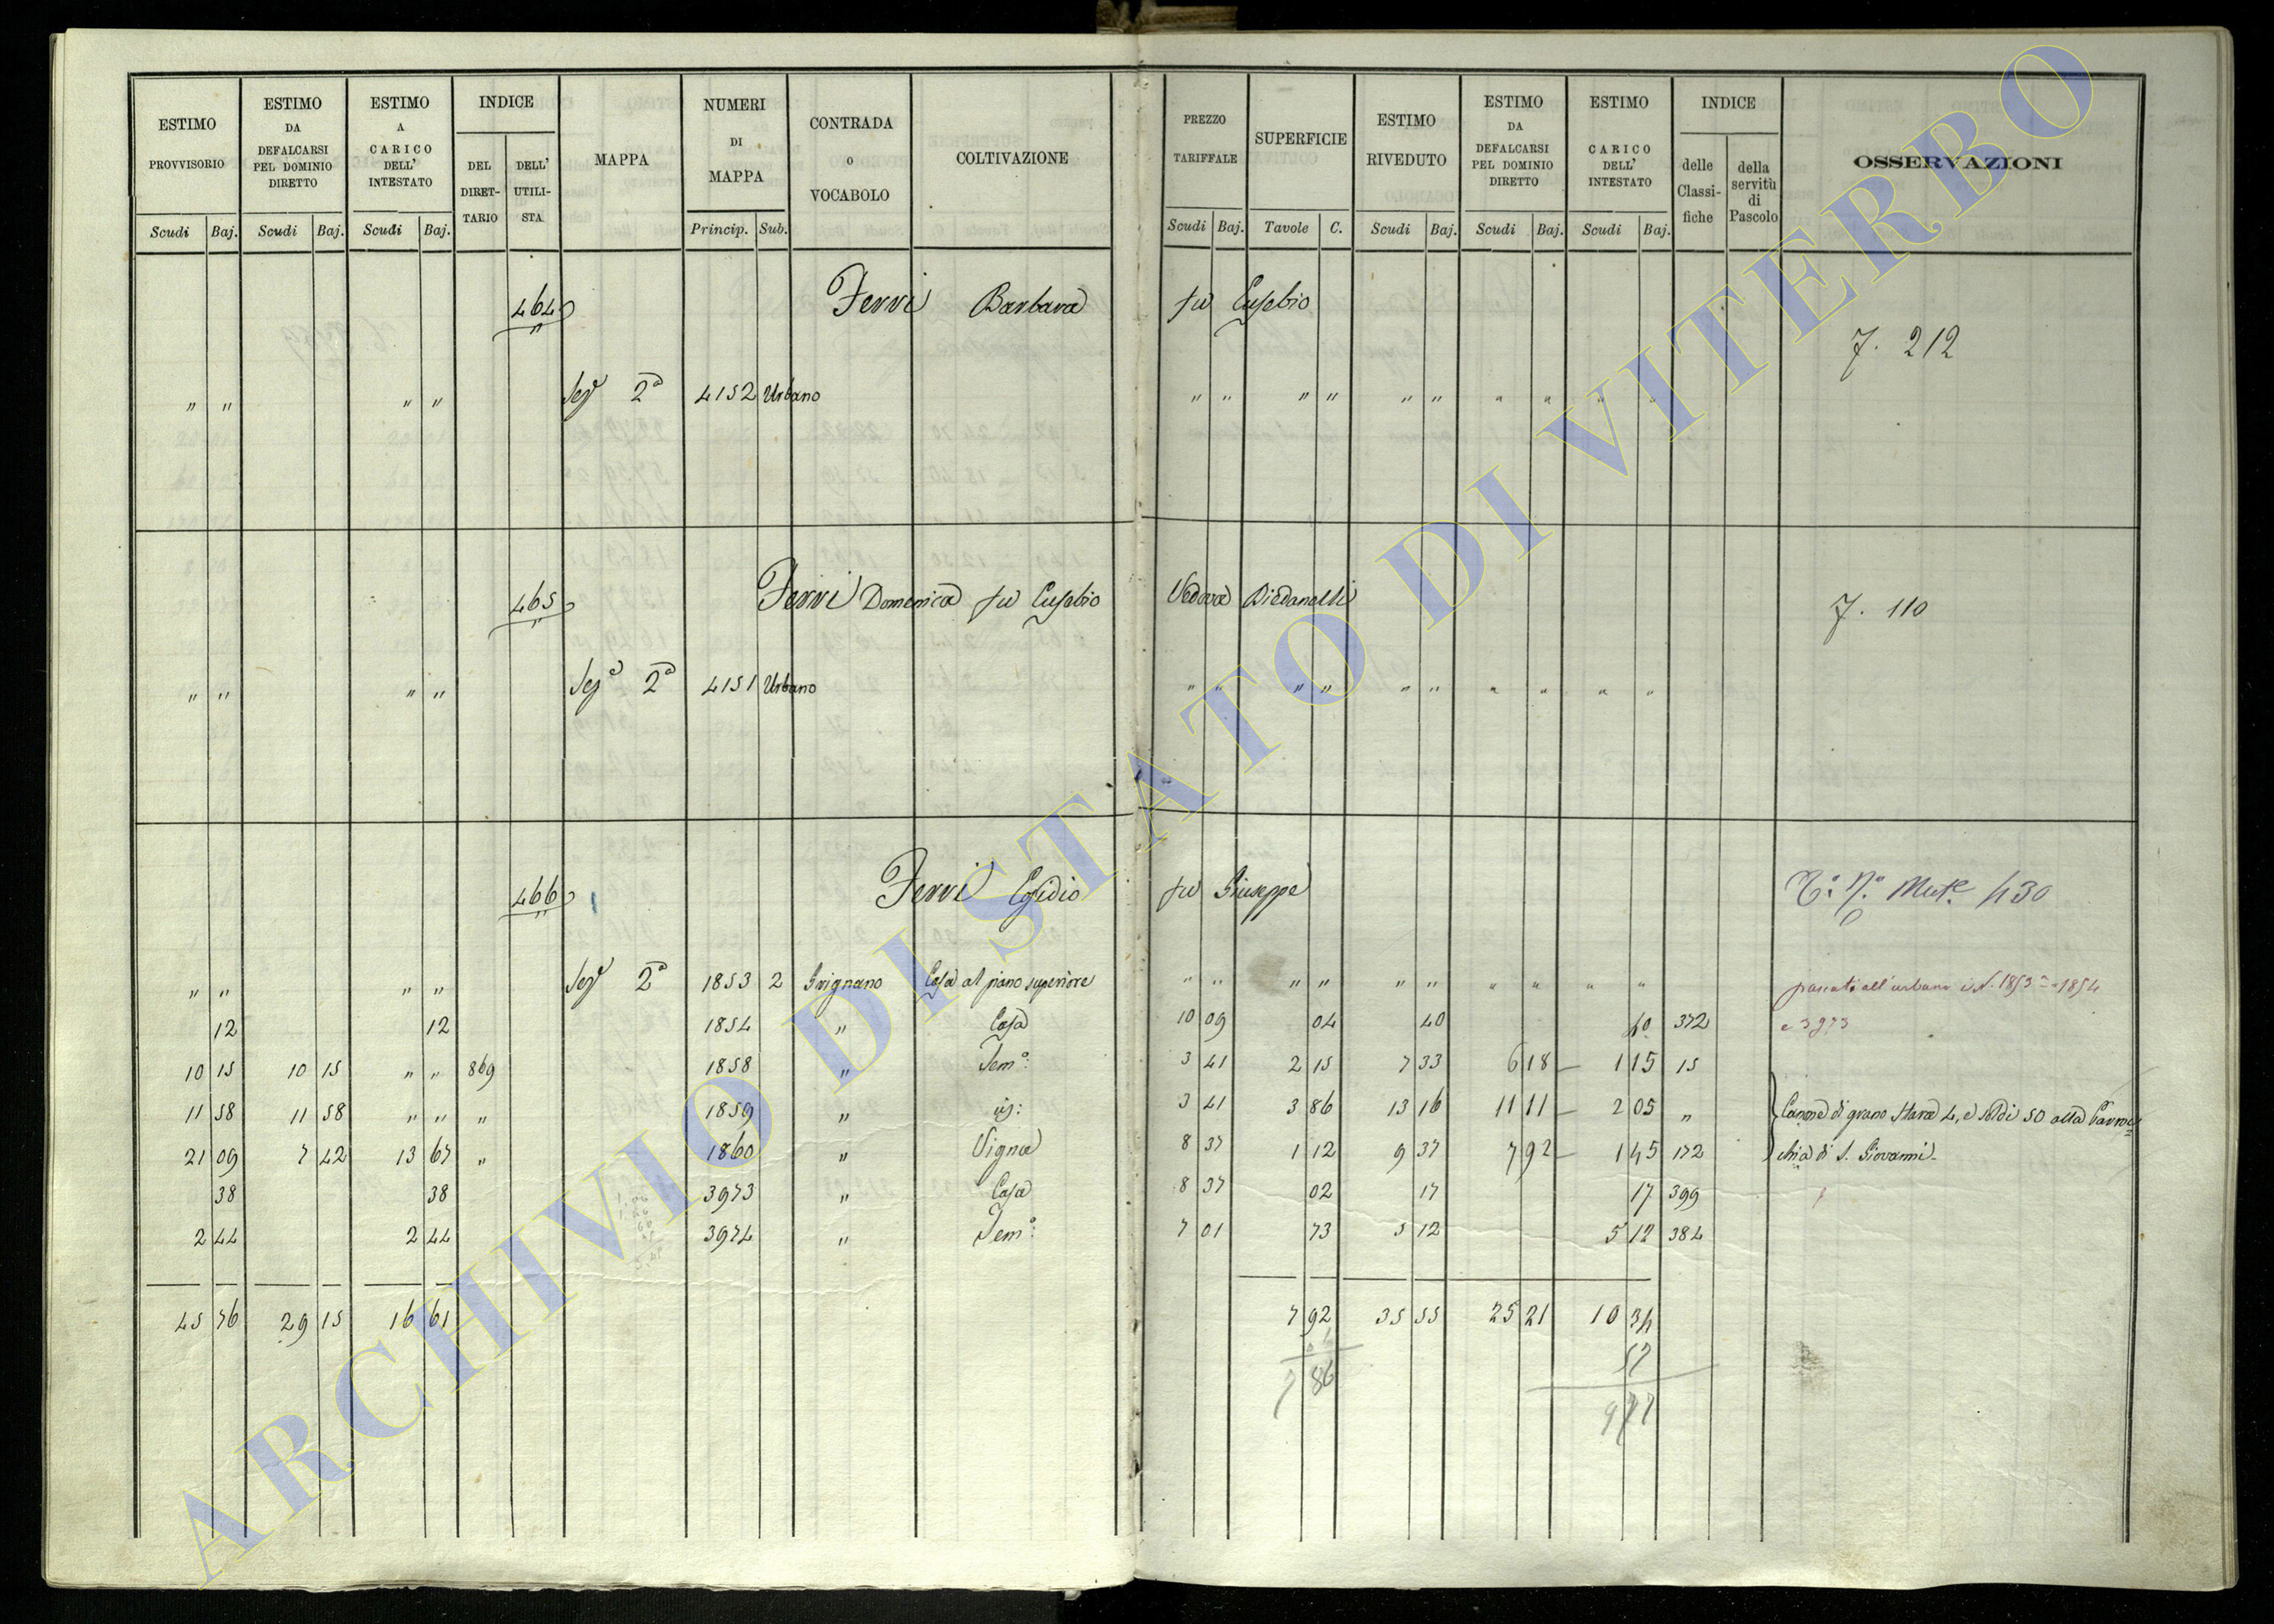 ESTIMO PROVVISORIO
ESTIMO DA DEFALCARSI PEL DOMINIO DIRETTO
ESTIMO A CARICO DELL' INTESTATO
INDICE
DEL DIRET-TARIO
DELL' UTILI-STA
MAPPA
NUMERI DI MAPPA
CONTRADA O VOCABOLO
COLTIVAZIONE
PREZZO TARIFFALE
SUPERFICIE
ESTIMO RIVEDUTO
ESTIMO DA DEFALCARSI PEL DOMINIO DIRETTO
ESTIMO A CARICO DELL' INTESTATO
INDICE
delle Classi-fiche
della servitù di Pascolo
OSSERVAZIONI
Scudi Baj. Scudi Baj. Scudi Baj. Princip. Sub. Scudi Baj. Tavole C. Scudi Baj. Scudi Baj. Scudi Baj.
464 Ferri Barbara fu Eusebio
7. 212
" " " " Seze 2a 4152 Urbano " " " " " " " " " "
465 Ferri Domenica fu Eusebio Vedova
7. 110
" " " " Seze 2a 4151 Urbano " " " " " " " " " "
466 Ferri Egidio fu Giuseppe
430
" " " " Seze 2a 1853 2 Grignano Casa al piano superiore " " " " " " " " " " 1853 1854
12 12 1854 " Casa 10 09 04 40 40 372 e 3973
10 15 10 15 " " 869 1858 " Semo: 3 41 2 15 7 33 6 18 1 15 15
11 58 11 58 " " " 1859 " 3 41 3 86 13 16 11 11 2 05 " Canone di grano Stara 4, e soldi 50 alla Parroc
21 09 7 42 13 67 " 1860 " Vigna 8 37 1 12 9 37 7 92 1 45 172 chia di S. Giovanni
38 38 3973 " Casa 8 37 02 17 17 399
2 44 2 44 3974 " Semo: 7 01 73 5 12 5 12 384
45 76 29 15 16 61 7 92 35 55 25 21 10 34
57
7 86
9 77
ARCHIVIO DI STATO DI VITERBO